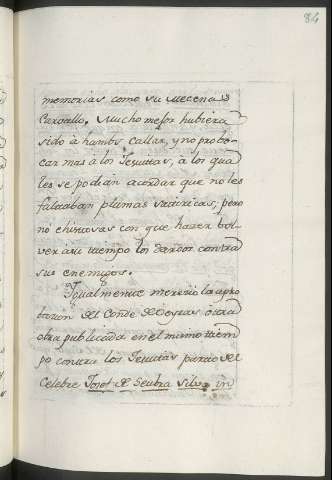 84
memorias como su Mecenas
Carvallo. Mucho mejor hubiera
sido à hambs callar, y no probo-
car mas à los Jesuitas, à los qua
les se podian acordar que no les
faltaban plumas satiricas, pero
no chistosas con que hazer bol-
ver à su tiempo los dardos contra
sus enemigos.
Igualmente mereciò la apro
bacion del Conde de Oeyras otra
obra publicada en el mismo tiem
po contra los Jesuitas parto del
celebre Josef de Seabra Silva in